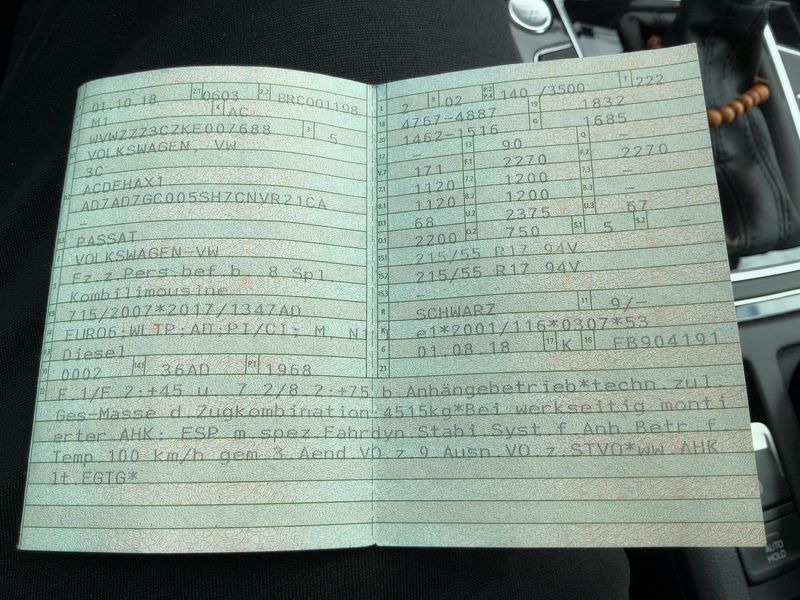 01.10.18 2.1 0603 2.2 BRC001198
M1 4 AC
WVWZZZ3CZKE007688 3 5
VOLKSWAGEN, VW
3C
ACDFHAX1
AD7AD7GC005SH7CNVR21CA
-
PASSAT
VOLKSWAGEN-VW
Fz.z.Pers.bef.b. 8 Spl.
Kombilimousine
715/2007*2017/1347AD
EURO6;WLTP;AD;PI/CI; M, N1 I
Diesel
0002 14.1 36AD P.1 1968
L 2 9 02 P.2 P.4 140 /3500 T 222
18 4767-4887 19 1832
20 1462-1516 G 1685
12 - 13 90 Q -
V.7 171 F.1 2270 F.2 2270
7.1 1120 7.2 1200 7.3 -
8.1 1120 8.2 1200 8.3 -
U.1 68 U.2 2375 U.3 67
O.1 2200 O.2 750 S.1 5 S.2 -
15.1 215/55 R17 94V
15.2 215/55 R17 94V
15.3 -
R SCHWARZ 11 9/-
K e1*2001/116*0307*53
6 01.08.18 17 K 16 FB904191
21
F.1/F.2:+45 u. 7.2/8.2:+75 b.Anhängebetrieb*techn.zul.
Ges-Masse d.Zugkombination:4515kg*Bei werkseitig monti
erter AHK: ESP m.spez.Fahrdyn.Stabi.Syst.f.Anh.Betr.f.
Temp.100 km/h gem.3.Aend.VO z.9.Ausn.VO z.STVO*ww.AHK
lt.EGTG*
AUTO
HOLD